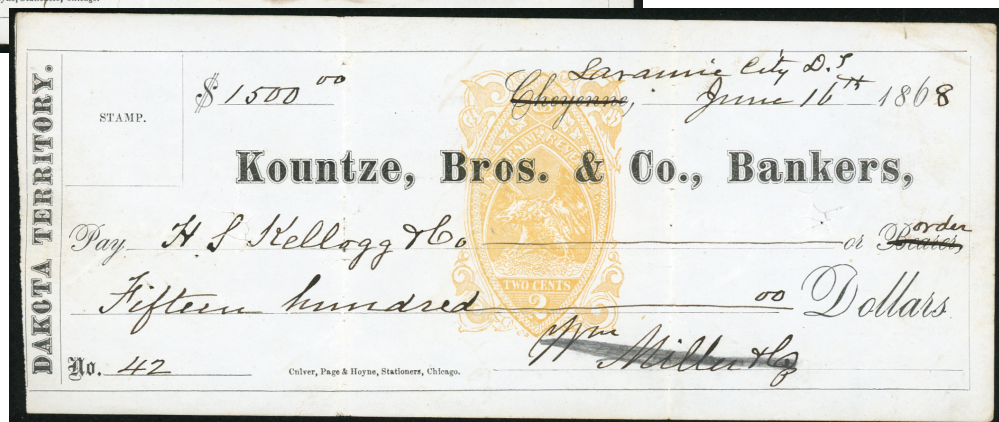 DAKOTA TERRITORY.
STAMP.
$ 1500 00
Laramie City D. T
Cheyenne, June 16th 1868
Kountze, Bros. & Co., Bankers,
Pay H S Kellogg & Co or Bearer, order
Fifteen hundred 00 Dollars
TWO CENTS
2
Wm Miller & Co
No. 42
Culver, Page & Hoyne, Stationers, Chicago.